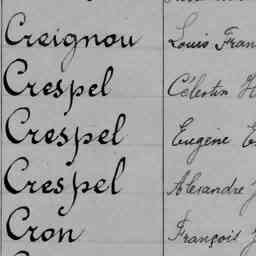 Creignou Louis Fran
Crespel Célestin H
Crespel Eugène E
Crespel Alexandre J
Cron François J